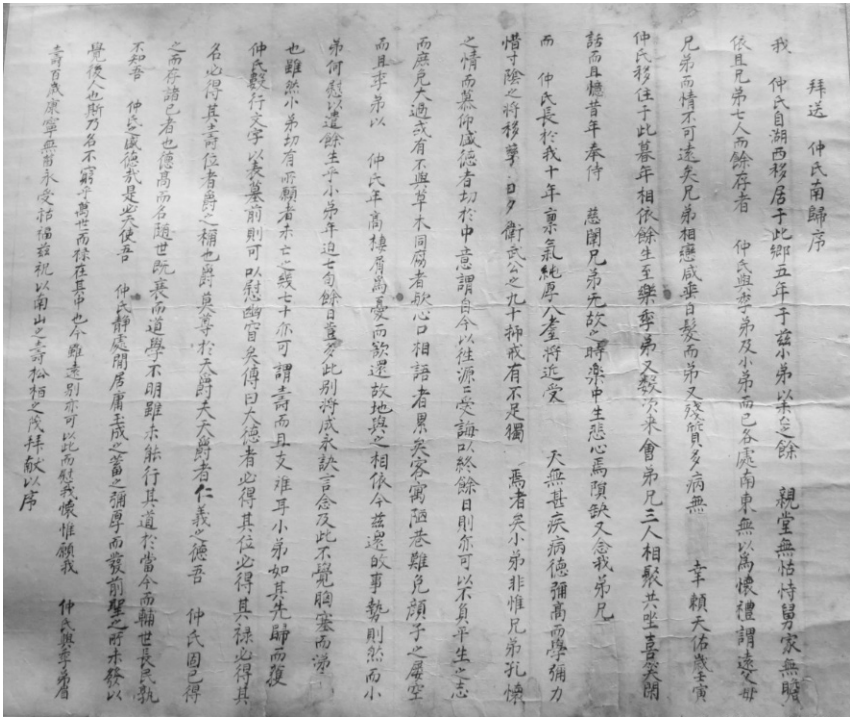 拜送 仲氏南歸序
我 仲氏自湖西移居于此鄉五年于玆小弟以未亡之餘 親堂無怙恃舅家無瞻
依且兄弟七人而餘存者 仲氏與季弟及小弟而已各處南東無以爲懷禮謂遠父母
兄弟而情不可遠矣兄弟相戀咸垂白髮而弟又殘質多病無 幸賴天佑歲壬寅
仲氏移住于此暮年相依餘生至樂季弟又數次來會弟兄三人相聚共坐喜笑閑
話而且憶昔年奉侍 慈闈兄弟无故之時樂中生悲心焉隕缺又念我弟兄
而 仲氏長於我十年稟氣純厚八耋將近受 天無甚疾病德彌高而學彌力
惜寸陰之將移孳孳日夕衛武公之九十抑戒有不足獨 焉者矣小弟非惟兄弟孔懷
之情而慕仰盛德者切於中意謂自今以往源源受誨以終餘日則亦可以不負平生之志
而庶免大過或有不與草木同腐者歟心口相語者累矣客寓陋巷難免顔子之屢空
而且季弟以 仲氏年高棲屑爲憂而歡還故地與之相依今玆還故事勢則然而小
弟何慰以遣餘生乎小弟年迫七旬餘日無多此別將成永訣言念及此不覺胸塞而涕
也雖然小弟切有所願者未亡之幾七十亦可謂壽而且支难耳小弟如其先歸而獲
仲氏數行文字以表墓前則可以慰幽宮矣傳曰大德者必得其位必得其祿必得其
名必得其壽位者爵之稱也爵莫尊於天爵夫天爵者仁義之德吾 仲氏固已得
之而存諸己者也德高而名隨世旣衰而道學不明雖未能行其道於當今而輔世長民孰
不知吾 仲氏之盛德哉是必天使吾 仲氏靜處閒居庸玉成之蓄之彌厚而發前聖之所未發以
覺後人也斯乃名不窮乎萬世而祿在其中也今雖遠別亦可以此而慰我懷惟願我 仲氏與季弟眉
壽百歲康寧無前永受祜福玆祝以南山之壽松栢之茂拜献以序